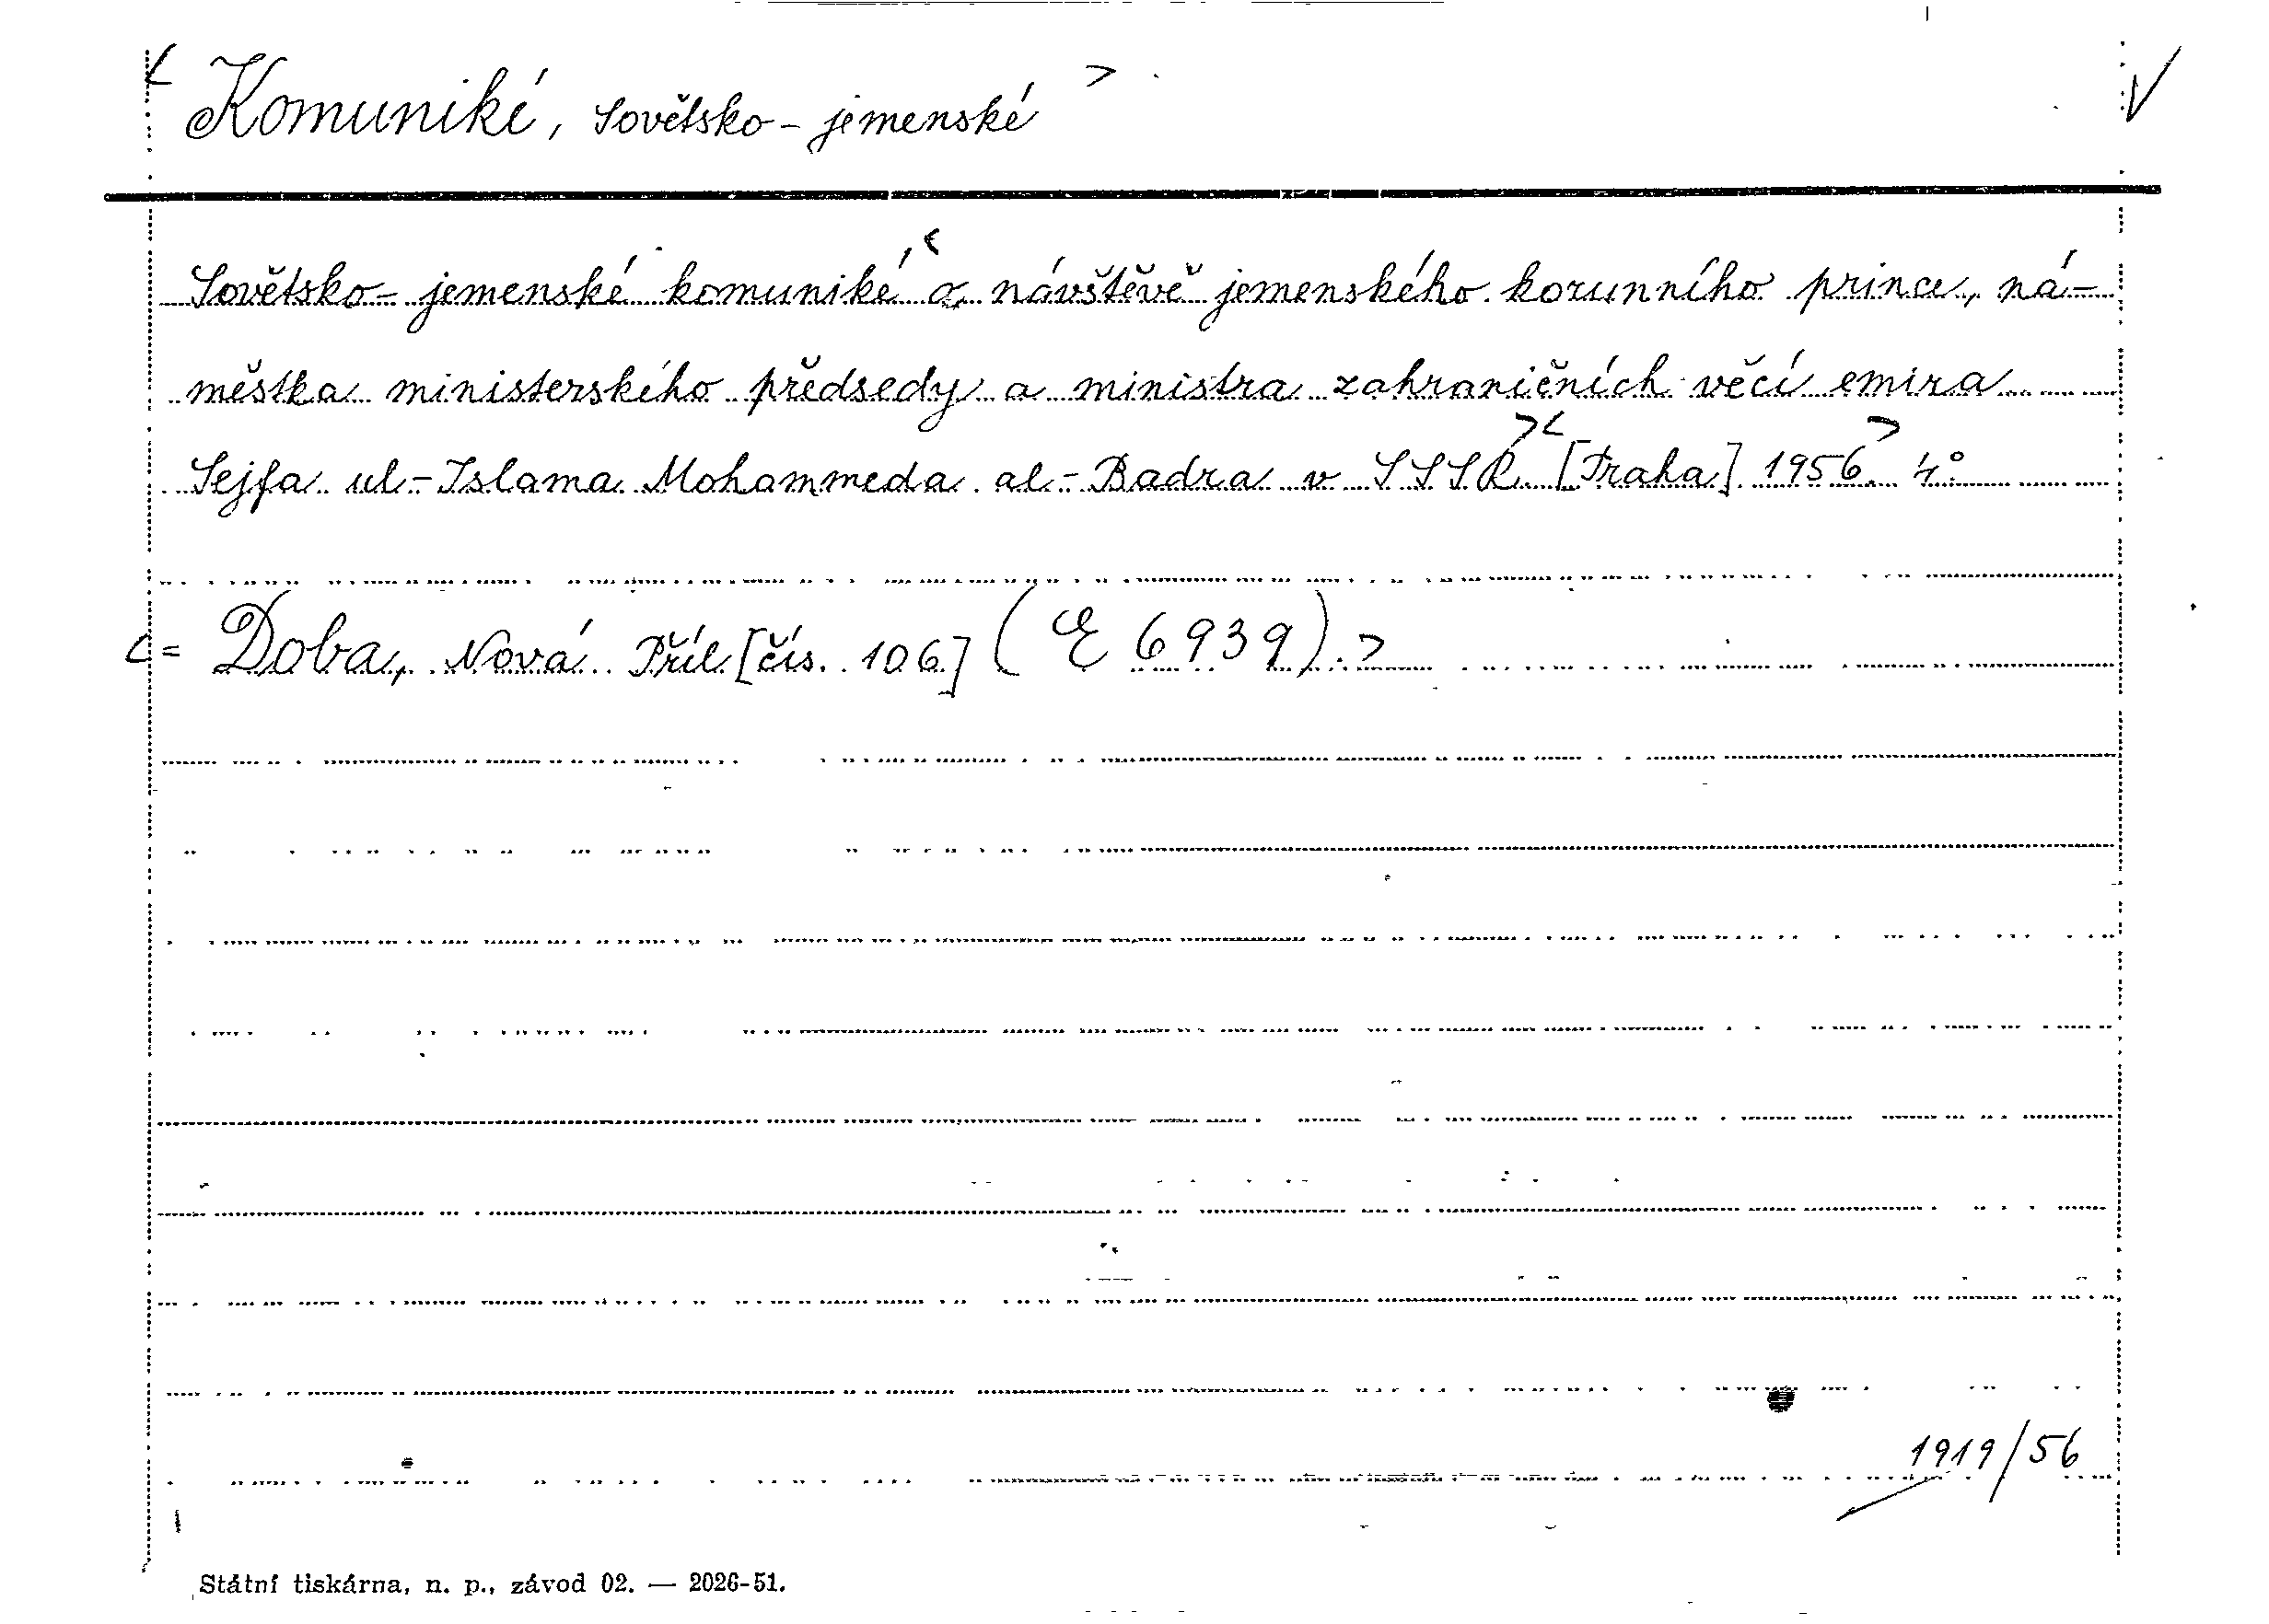 < Komuniké, Sovětsko-jemenské > √
Sovětsko-jemenské komuniké <o návštěvě jemenského korunního prince, ná-
městka ministerského předsedy a ministra zahraničních věcí emira
Sejfa ul-Islama Mohammeda al-Badra v SSSR. >< [Praha] 1956. > 4°
<= Doba, Nová. Příl. [čís. 106] (E 6939). >
1919/56
Státní tiskárna, n. p., závod 02. — 2026-51.